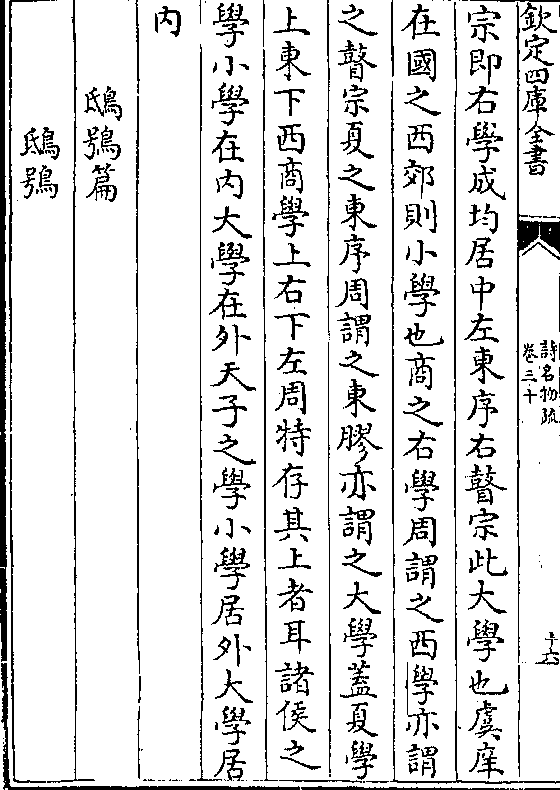 欽定四庫全書
詩名物疏
卷三十
十六
宗即右學成均居中左東序右瞽宗此大學也虞庠
在國之西郊則小學也商之右學周謂之西學亦謂
之瞽宗夏之東序周謂之東膠亦謂之大學蓋夏學
上東下西商學上右下左周特存其上者耳諸侯之
學小學在内大學在外天子之學小學居外大學居
内
鴟鴞篇
鴟鴞